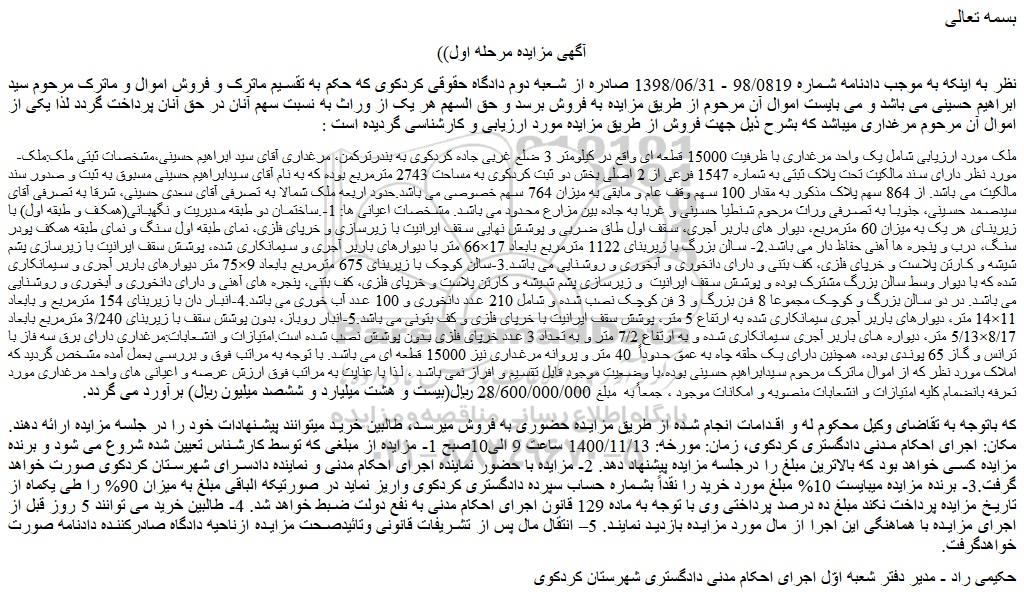 بسمه تعالی
آگهی مزایده مرحله اول))
نظر به اینکه به موجب دادنامه شماره 98/0819 - 1398/06/31 صادره از شعبه دوم دادگاه حقوقی کردکوی که حکم به تقسیم ماترک و فروش اموال و ماترک مرحوم سید
ابراهیم حسینی می باشد و می بایست اموال آن مرحوم از طریق مزایده به فروش برسد و حق السهم هر یک از وراث به نسبت سهم آنان در حق آنان پرداخت گردد لذا یکی از
اموال آن مرحوم مرغداری میباشد که بشرح ذیل جهت فروش از طریق مزایده مورد ارزیابی و کارشناسی گردیده است :
ملک مورد ارزیابی شامل یک واحد مرغداری با ظرفیت 15000 قطعه ای واقع در کیلومتر 3 ضلع غربی جاده کردکوی به بندرترکمن، مرغداری آقای سید ابراهیم حسینی،مشخصات ثبتی ملک:ملک-
مورد نظر دارای سند مالکیت تحت پلاک ثبتی به شماره 1547 فرعی از 2 اصلی بخش دو ثبت کردکوی به مساحت 2743 مترمربع بوده که به نام آقای سیدابراهیم حسینی مسبوق به ثبت و صدور سند
مالکیت می باشد. از 864 سهم پلاک مذکور به مقدار 100 سهم وقف عام و مابقی به میزان 764 سهم خصوصی می باشد.حدود اربعه ملک شمالا به تصرفی آقای سعدی حسینی، شرقا به تصرفی آقای
سیدصمد حسینی، جنوبا به تصرفی وراث مرحوم شنطیا حسینی و غربا به جاده بین مزارع محدود می باشد. مشخصات اعیانی ها: 1-.ساختمان دو طبقه مدیریت و نگهبانی(همکف و طبقه اول) با
زیربنای هر یک به میزان 60 مترمربع، دیوار های باربر آجری، سقف اول طاق ضربی و پوشش نهایی سقف ایرانیت با زیرسازی و خرپای فلزی، نمای طبقه اول سنگ و نمای طبقه همکف پودر
سنگ، درب و پنجره ها آهنی حفاظ دار می باشد.2- سالن بزرگ با زیربنای 1122 مترمربع بابعاد 17×66 متر با دیوارهای باربر آجری و سیمانکاری شده، پوشش سقف ایرانیت با زیرسازی پشم
شیشه و کارتن پلاست و خرپای فلزی، کف بتنی و دارای دانخوری و آبخوری و روشنایی می باشد.3-سالن کوچک با زیربنای 675 مترمربع بابعاد 9×75 متر دیوارهای باربر آجری و سیمانکاری
شده که با دیوار وسط سالن بزرگ مشترک بوده و پوشش سقف ایرانیت و زیرسازی پشم شیشه و کارتن پلاست و خرپای فلزی، کف بتنی، پنجره های آهنی و دارای دانخوری و آبخوری و روشنایی
می باشد. در دو سالن بزرگ و کوچک مجموعا 8 فن بزرگ و 3 فن کوچک نصب شده و شامل 210 عدد دانخوری و 100 عدد آب خوری می باشد.4-انبار دان با زیربنای 154 مترمربع و بابعاد
11×14 متر، دیوارهای باربر آجری سیمانکاری شده به ارتفاع 5 متر، پوشش سقف ایرانیت با خرپای فلزی و کف بتونی می باشد.5-انبار روباز، بدون پوشش سقف با زیربنای 3/240 مترمربع بابعاد
8/17×5/13 متر، دیواره های باربر آجری سیمانکاری شده و به ارتفاع 7/2 متر و به تعداد 3 عدد خرپای فلزی بدون پوشش نصب شده است.امتیازات و انشعابات:مرغداری دارای برق سه فاز با
ترانس و گاز 65 پوندی بوده، همچنین دارای یک حلقه چاه به عمق حدوداً 40 متر و پروانه مرغداری نیز 15000 قطعه ای می باشد. با توجه به مراتب فوق و بررسی بعمل آمده مشخص گردید که
املاک مورد نظر که از اموال ماترک مرحوم سیدابراهیم حسینی بوده،با وضعیت موجود قابل تقسیم و افراز نمی باشد ، لذا با عنایت به مراتب فوق ارزش عرصه و اعیانی های واحد مرغداری مورد
تعرفه بانضمام کلیه امتیازات و انشعابات منصوبه و امکانات موجود ، جمعاً به مبلغ 28/600/000/000 ریال(بیست و هشت میلیارد و ششصد میلیون ریال) برآورد می گردد.
که باتوجه به تقاضای وکیل محکوم له و اقدامات انجام شده از طریق مزایده حضوری به فروش میرسد، طالبین خرید میتوانند پیشنهادات خود را در جلسه مزایده ارائه دهند.
مکان: اجرای احکام مدنی دادگستری کردکوی، زمان: مورخه: 1400/11/13 ساعت 9 الی10صبح 1- مزایده از مبلغی که توسط کارشناس تعیین شده شروع می شود و برنده
مزایده کسی خواهد بود که بالاترین مبلغ را درجلسه مزایده پیشنهاد دهد. 2- مزایده با حضور نماینده اجرای احکام مدنی و نماینده دادسرای شهرستان کردکوی صورت خواهد
گرفت.3- برنده مزایده میبایست 10% مبلغ مورد خرید را نقداً بشماره حساب سپرده دادگستری کردکوی واریز نماید در صورتیکه الباقی مبلغ به میزان 90% را طی یکماه از
تاریخ مزایده پرداخت نکند مبلغ ده درصد پرداختی وی با توجه به ماده 129 قانون اجرای احکام مدنی به نفع دولت ضبط خواهد شد. 4- طالبین خرید می توانند 5 روز قبل از
اجرای مزایده با هماهنگی این اجرا از مال مورد مزایده بازدید نمایند. 5– انتقال مال پس از تشریفات قانونی وتائیدصحت مزایده ازناحیه دادگاه صادرکننده دادنامه صورت
خواهدگرفت.
حکیمی راد - مدیر دفتر شعبه اوّل اجرای احکام مدنی دادگستری شهرستان کردکوی
ParsNamadData
پایگاه اطلاع رسانی مناقصه و مزایده